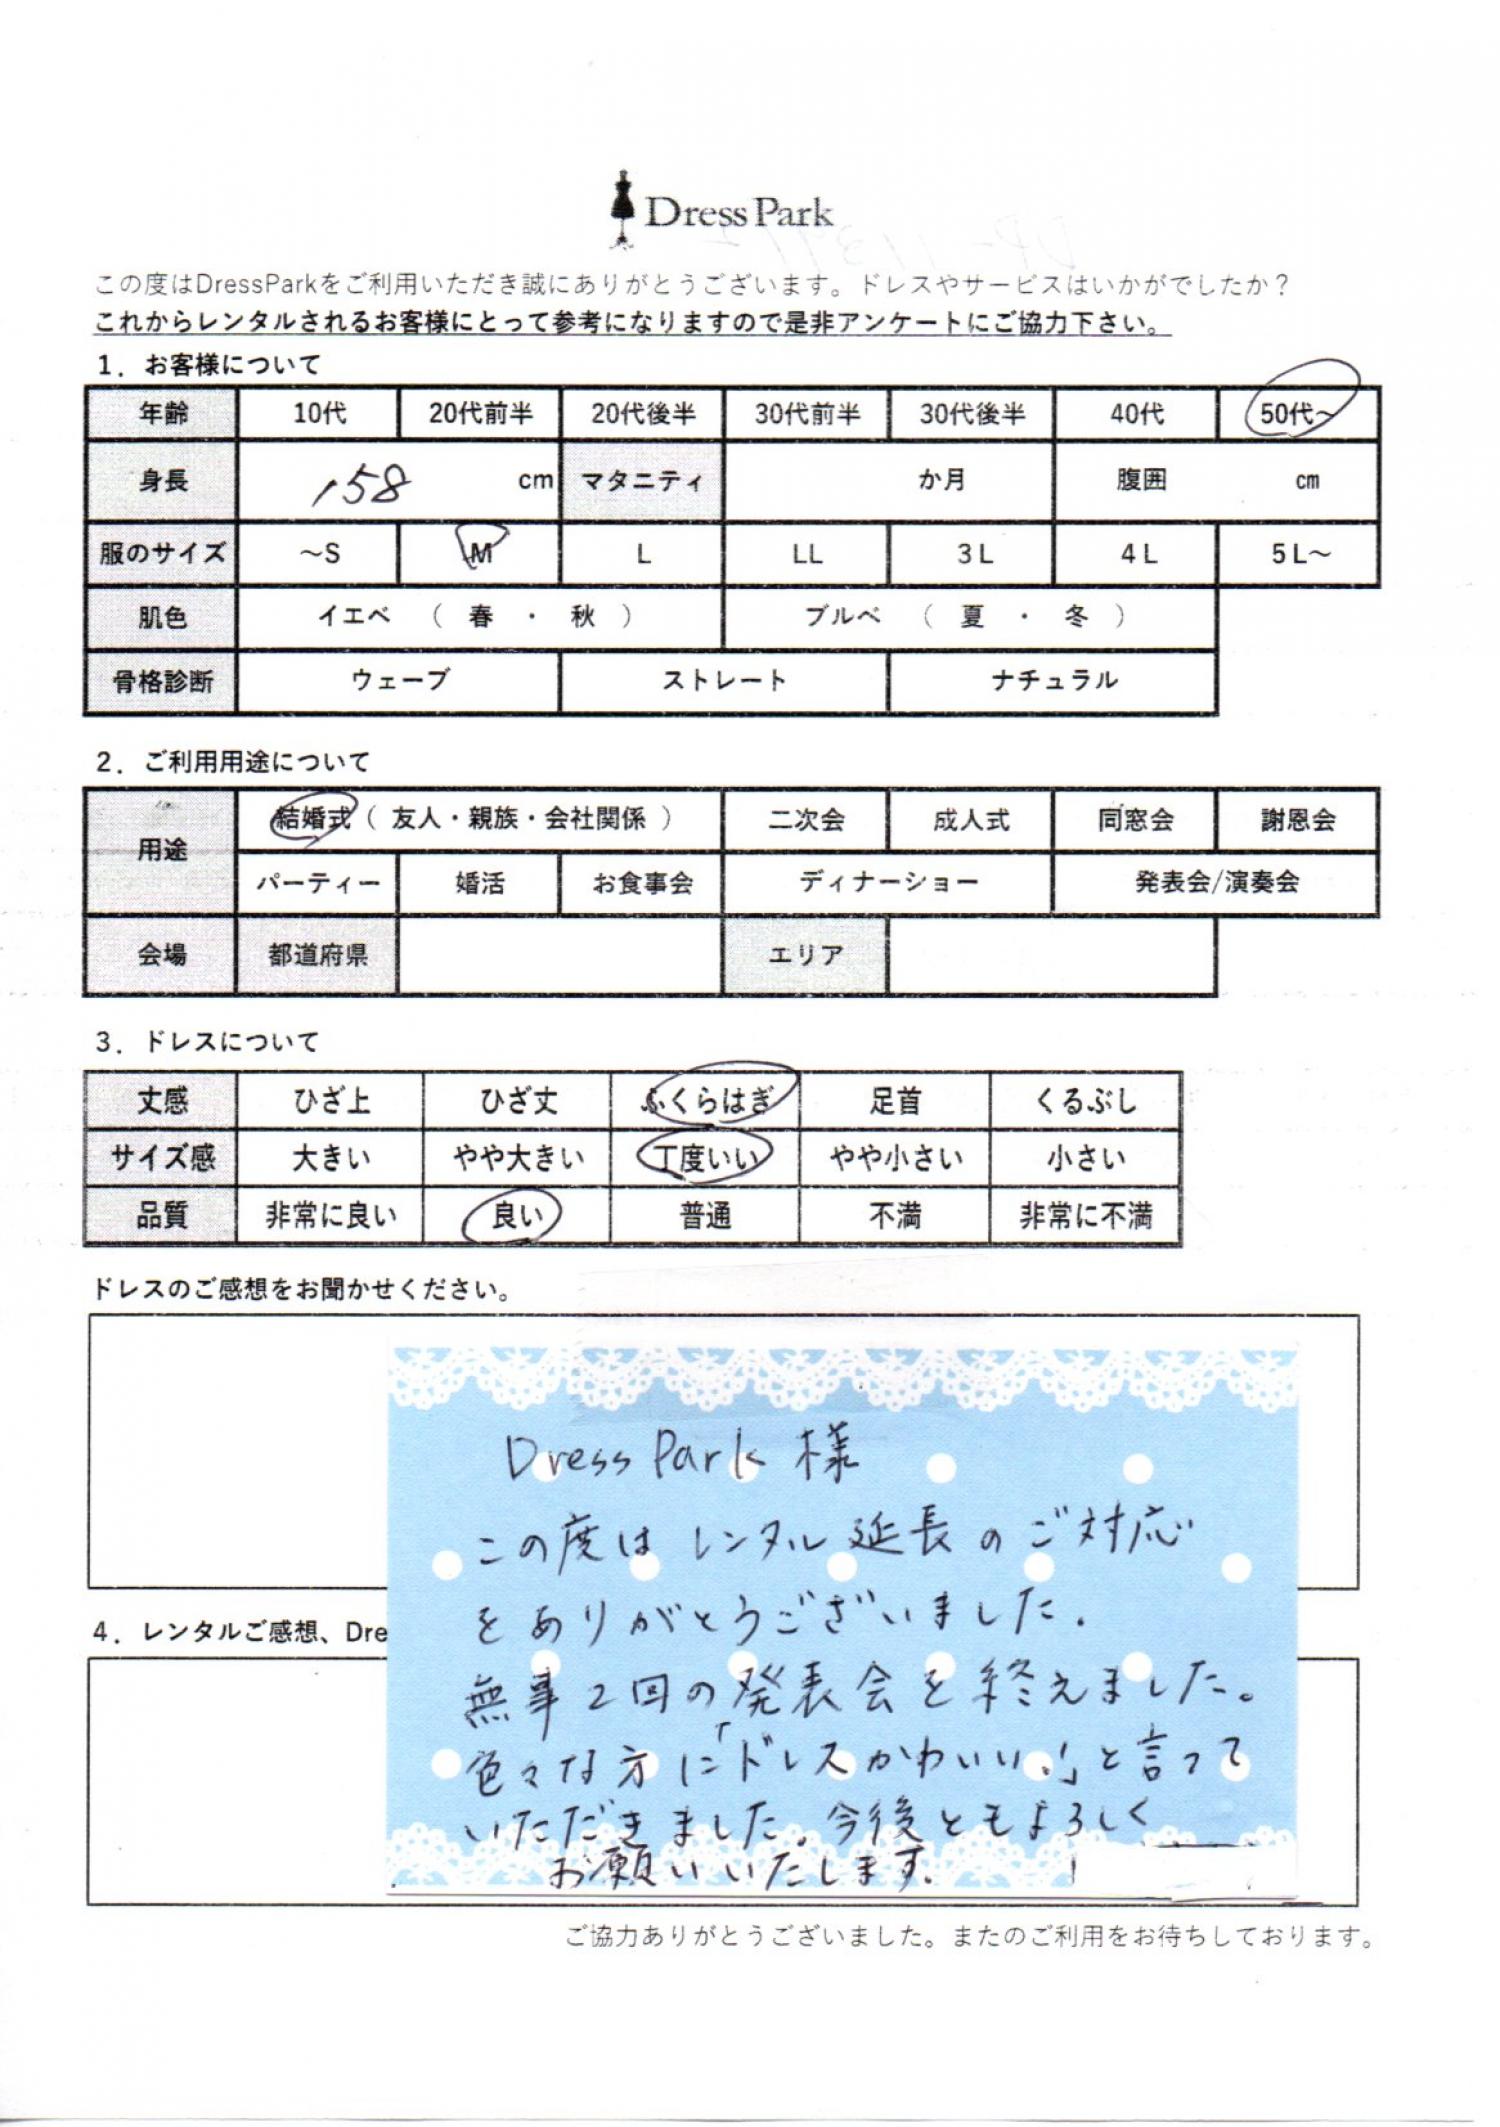 Dress Park
この度はDressParkをご利用いただき誠にありがとうございます。ドレスやサービスはいかがでしたか？
これからレンタルされるお客様にとって参考になりますので是非アンケートにご協力下さい。
1．お客様について
年齢 10代 20代前半 20代後半 30代前半 30代後半 40代 50代～
身長 158 cm マタニティ か月 腹囲 cm
服のサイズ ～S M L LL 3L 4L 5L～
肌色 イエベ （ 春 ・ 秋 ） ブルベ （ 夏 ・ 冬 ）
骨格診断 ウェーブ ストレート ナチュラル
2．ご利用用途について
用途 結婚式（ 友人・親族・会社関係 ） 二次会 成人式 同窓会 謝恩会
パーティー 婚活 お食事会 ディナーショー 発表会/演奏会
会場 都道府県 エリア
3．ドレスについて
丈感 ひざ上 ひざ丈 ふくらはぎ 足首 くるぶし
サイズ感 大きい やや大きい 丁度いい やや小さい 小さい
品質 非常に良い 良い 普通 不満 非常に不満
ドレスのご感想をお聞かせください。
Dress Park 様
この度は レンタル延長のご対応
をありがとうございました.
4．レンタルご感想、Dre
無事2回の発表会を終えました。
色々な方に「ドレスかわいい!」と言って
いただきました。今後ともよろしく
お願いいたします.
ご協力ありがとうございました。またのご利用をお待ちしております。